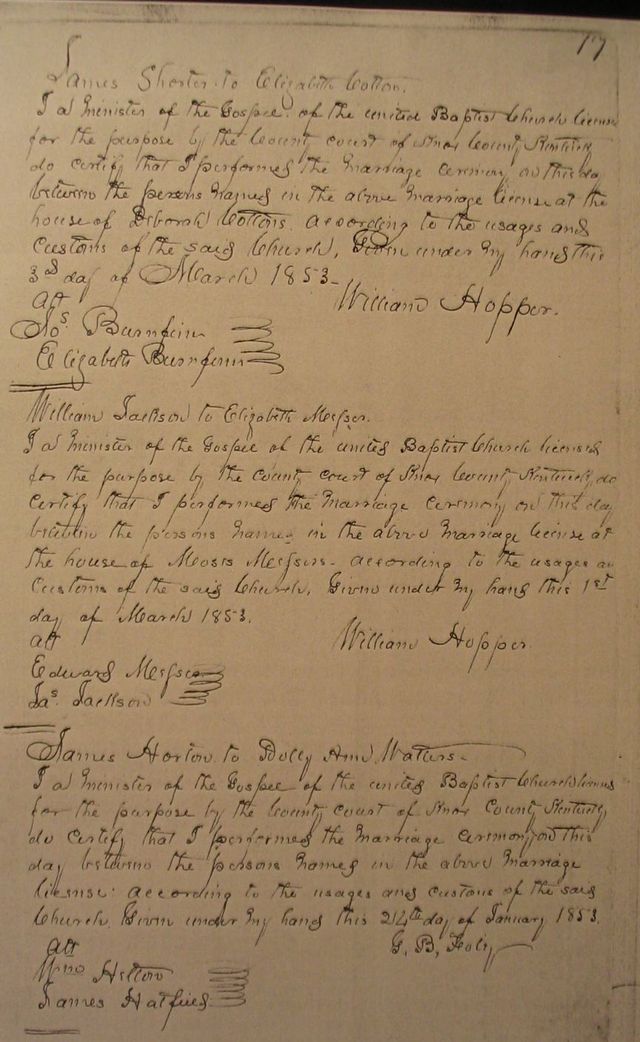 17
James Shorter to Elizabeth Cotton.
I a Minister of the Gospel of the united Baptist Church licensed
for the purpose by the County court of Knox County Kentucky
do certify that I performed the Marriage ceremony on this day
between the persons Named in the above Marriage license at the
house of Deborah Cottons. according to the usages and
customs of the said Church. Given under My hand this
3rd day of March 1853.
William Hopper.
Att
Jos Burnfin
Elizabeth Burnfin
William Jackson to Elizabeth Messer.
I a Minister of the Gospel of the united Baptist Church licensed
for the purpose by the county court of Knox County Kentucky do
certify that I performed the Marriage ceremony on this day
between the persons Named in the above Marriage license at
the house of Moses Messers. according to the usages an
Customs of the said Church. Given under My hand this 1st
day of March 1853.
William Hopper
Att
Edward Messer
Jas Jackson
James Horton to Dolly Ann Watters
I a Minister of the Gospel of the united Baptist Church licensed
for the purpose by the County court of Knox County Kentucky
do certify that I performed the Marriage ceremony on this
day between the persons Named in the above Marriage
license. according to the usages and customs of the said
Church. Given under My hand this 24th day of January 1853.
G. B. Foley
Att
Wm Helton
James Hatfield